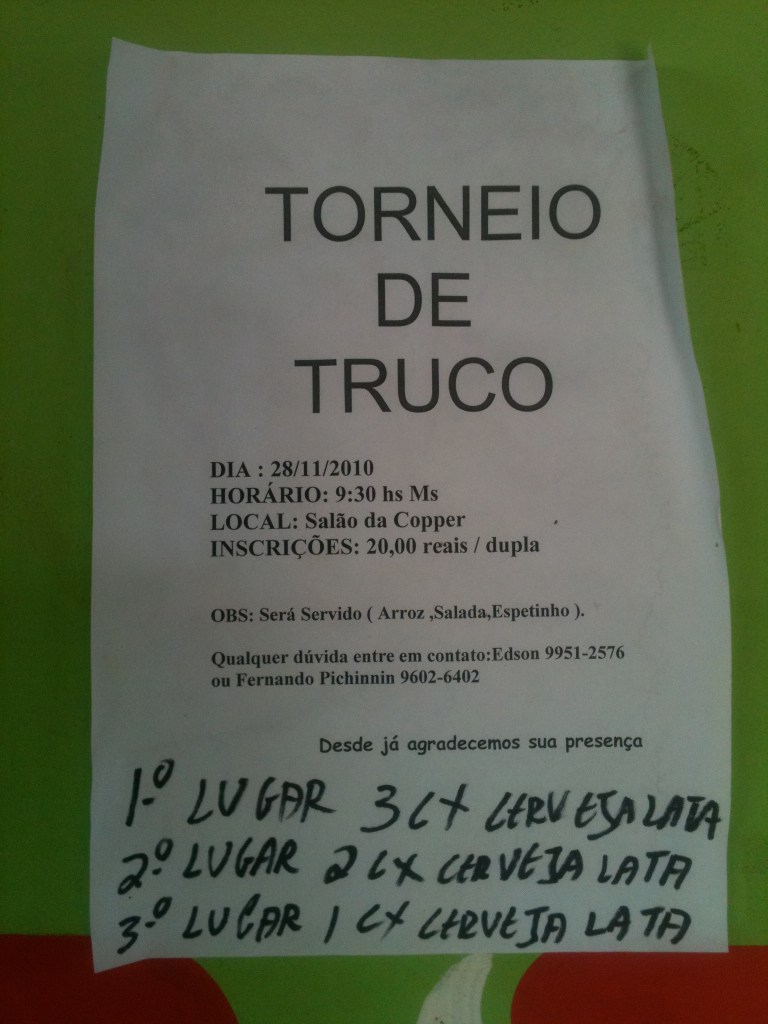 TORNEIO
DE
TRUCO
DIA : 28/11/2010
HORÁRIO: 9:30 hs Ms
LOCAL: Salão da Copper
INSCRIÇÕES: 20,00 reais / dupla
OBS: Será Servido ( Arroz ,Salada,Espetinho ).
Qualquer dúvida entre em contato:Edson 9951-2576
ou Fernando Pichinnin 9602-6402
Desde já agradecemos sua presença
1.º LUGAR 3 CX CERVEJA LATA
2.º LUGAR 2 CX CERVEJA LATA
3.º LUGAR 1 CX CERVEJA LATA